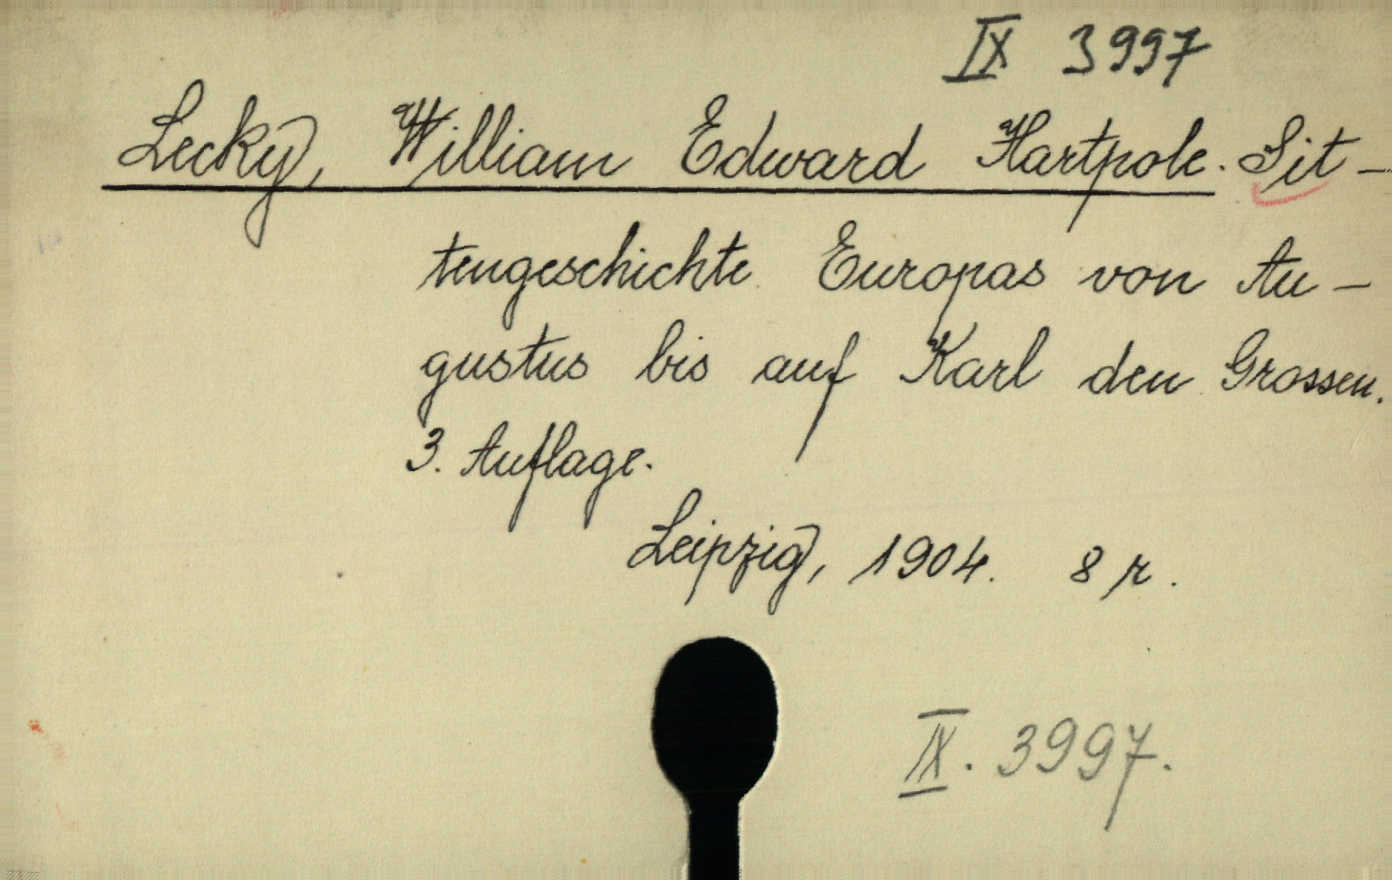 IX 3997
Lecky, William Edward Hartpole. Sit-
tengeschichte Europas von Au-
gustus bis auf Karl den Grossen.
3. Auflage.
Leipzig, 1904. 8 r.
IX. 3997.